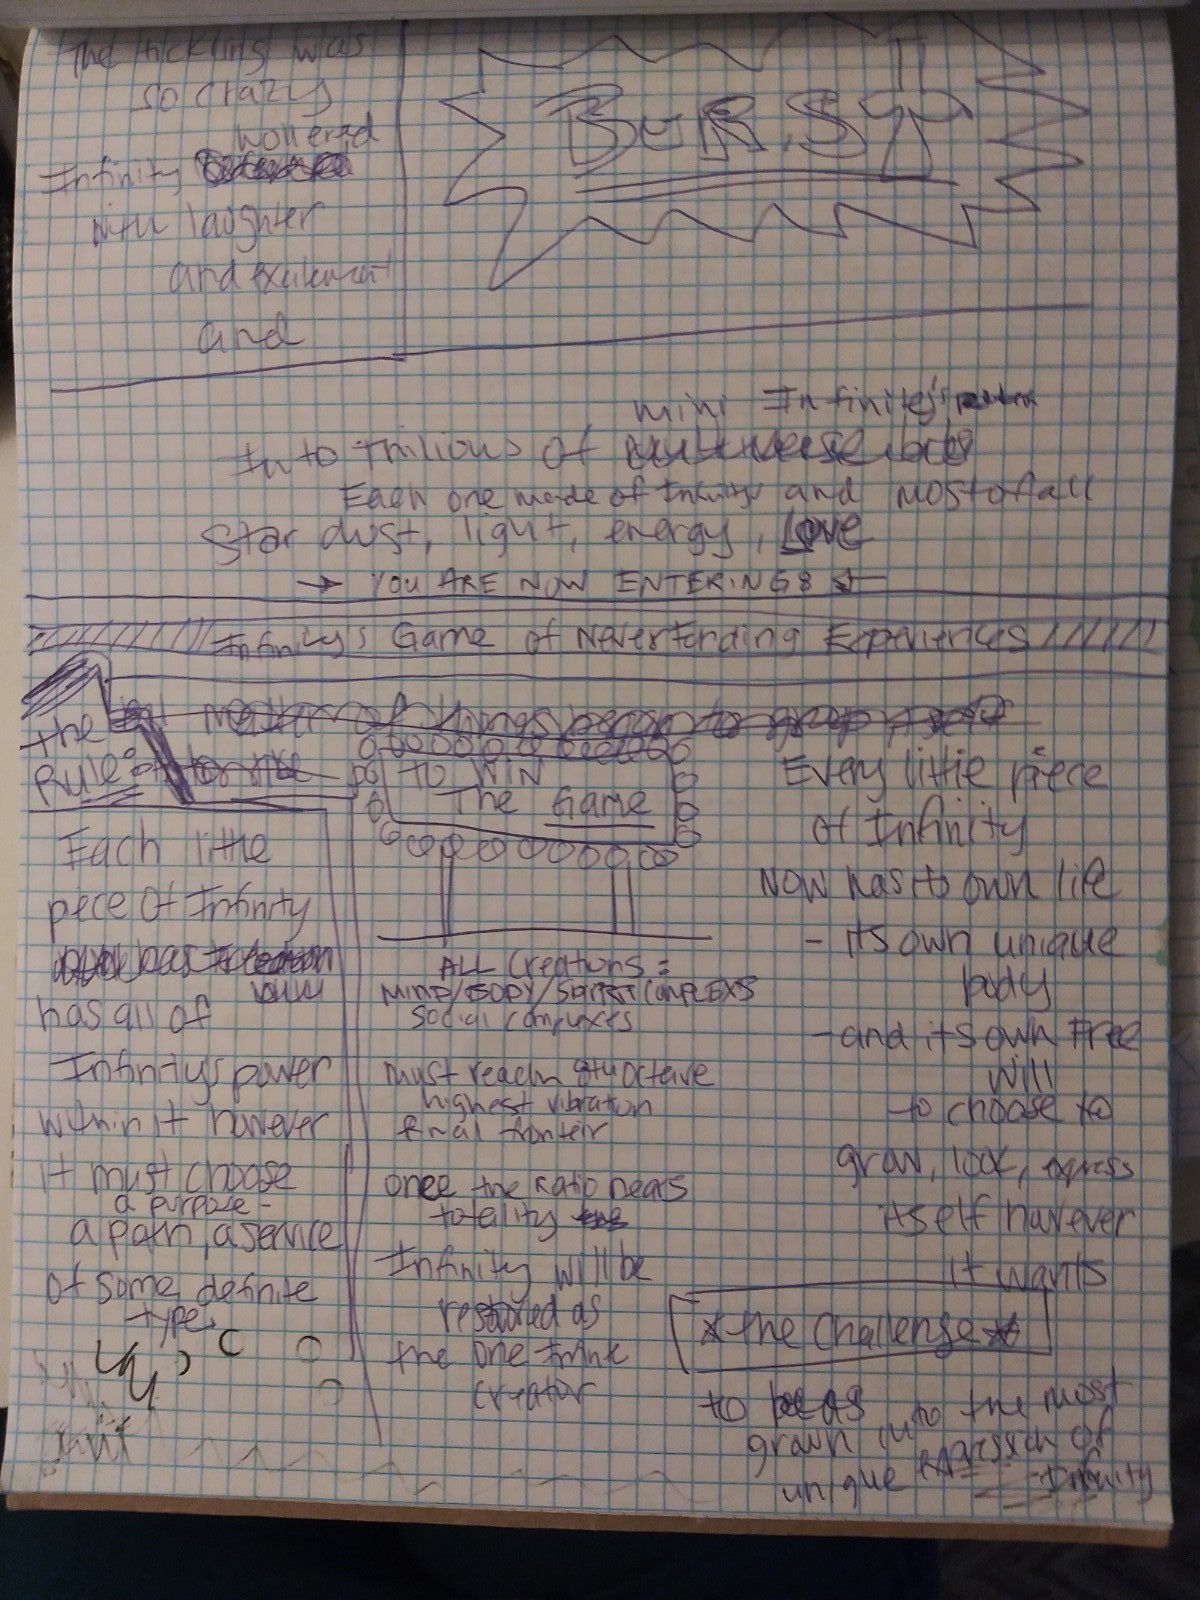 The tickling was
so crazy
hollered
Infinity
with laughter
and
and
BURST
mini Infinitys
Into trillions of
Each one made of Infinity and most of all
Star dust, light, energy, Love
→ YOU ARE NOW ENTERING
Infinity's Game of Never Ending Experiences
the
Rules
TO WIN
The Game
Each little
piece of Infinity
has all of
Infinitys power
within it however
it must choose
a purpose -
a path, a service
of some definite
type.
ALL Creations =
MIND/BODY/SPIRIT COMPLEXS
Social complexes
must reach 8th octave
highest vibration
final fronteir
once the ratio nears
totality
Infinity will be
restored as
the one
creator
Every little piece
of Infinity
Now has its own life
- its own unique
body
- and its own Free
will
to choose to
grow, look, express
itself however
it wants
* the Challenge *
to
grow into the most
unique expression of
Infinity